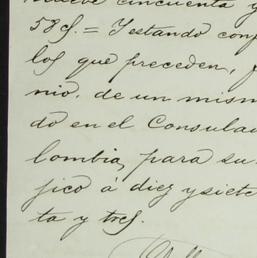 nueve cincuenta y
58 cs. = Y estando conf
los que preceden, f
nio, de un mism
do en el Consula
lombia, para su
fico á diez y siete
ta y tres.